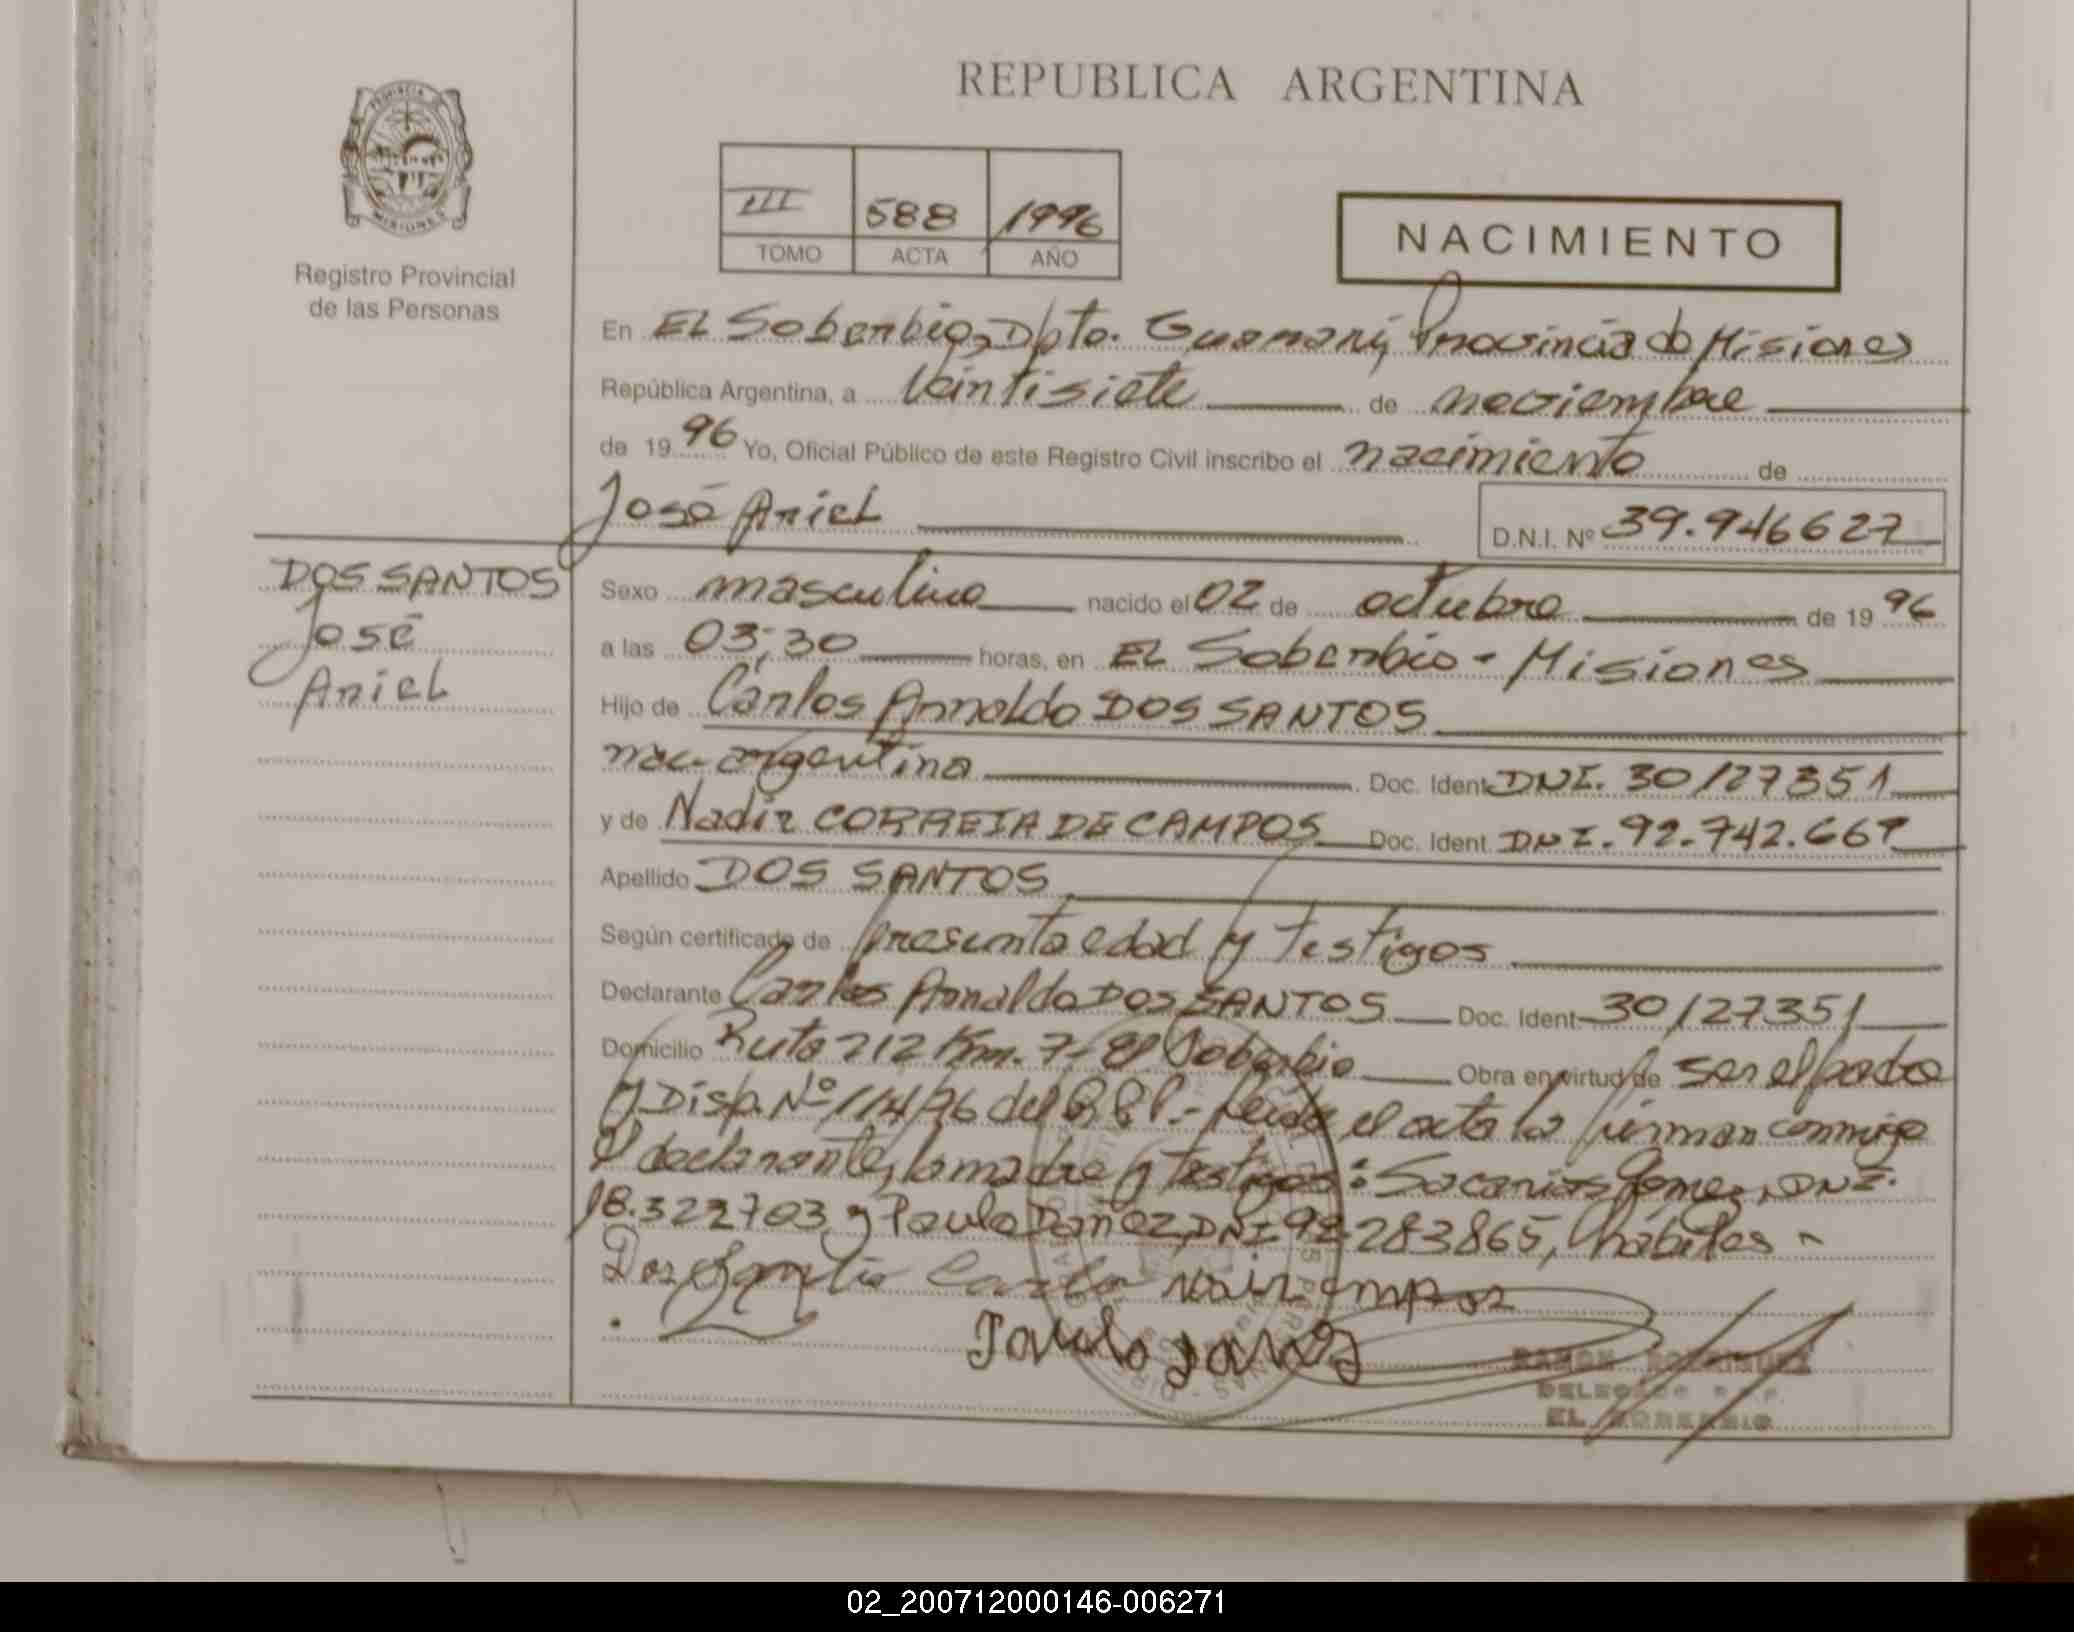 REPUBLICA ARGENTINA
PROVINCIA DE
MISIONES
Registro Provincial
de las Personas
III 588 1996
TOMO ACTA AÑO
NACIMIENTO
En EL Soberbio, Dpto. Guaraní, Provincia de Misiones
República Argentina, a veintisiete de noviembre
de 19 96 Yo, Oficial Público de este Registro Civil inscribo el nacimiento de
José Ariel D.N.I. Nº 39.946627
DOS SANTOS
José
Ariel
Sexo masculino nacido el 02 de octubre de 19 96
a las 03;30 horas, en EL Soberbio - Misiones
Hijo de Carlos Arnaldo DOS SANTOS
nac. argentina Doc. Ident. DNI. 30127351
y de Nadir CORREIA DE CAMPOS Doc. Ident. DNI. 92.742.667
Apellido DOS SANTOS
Según certificado de presunta edad y testigos
Declarante Carlos Arnaldo DOS SANTOS Doc. Ident. 30127351
Domicilio Ruta 212 Km. 7- El Soberbio Obra en virtud de ser el padre
y Disp. Nº 114/96 del R.P.P.- Leida el acta la firman conmigo
el declarante, la madre y testigos: Gomez, DNI.
18.322703 y Paulo DNI 92.283865, hábiles -
Dos Carlo
Paulo
RAMON RODRIGUEZ
DELEGADO R.P.P.
EL SOBERBIO
02_200712000146-006271